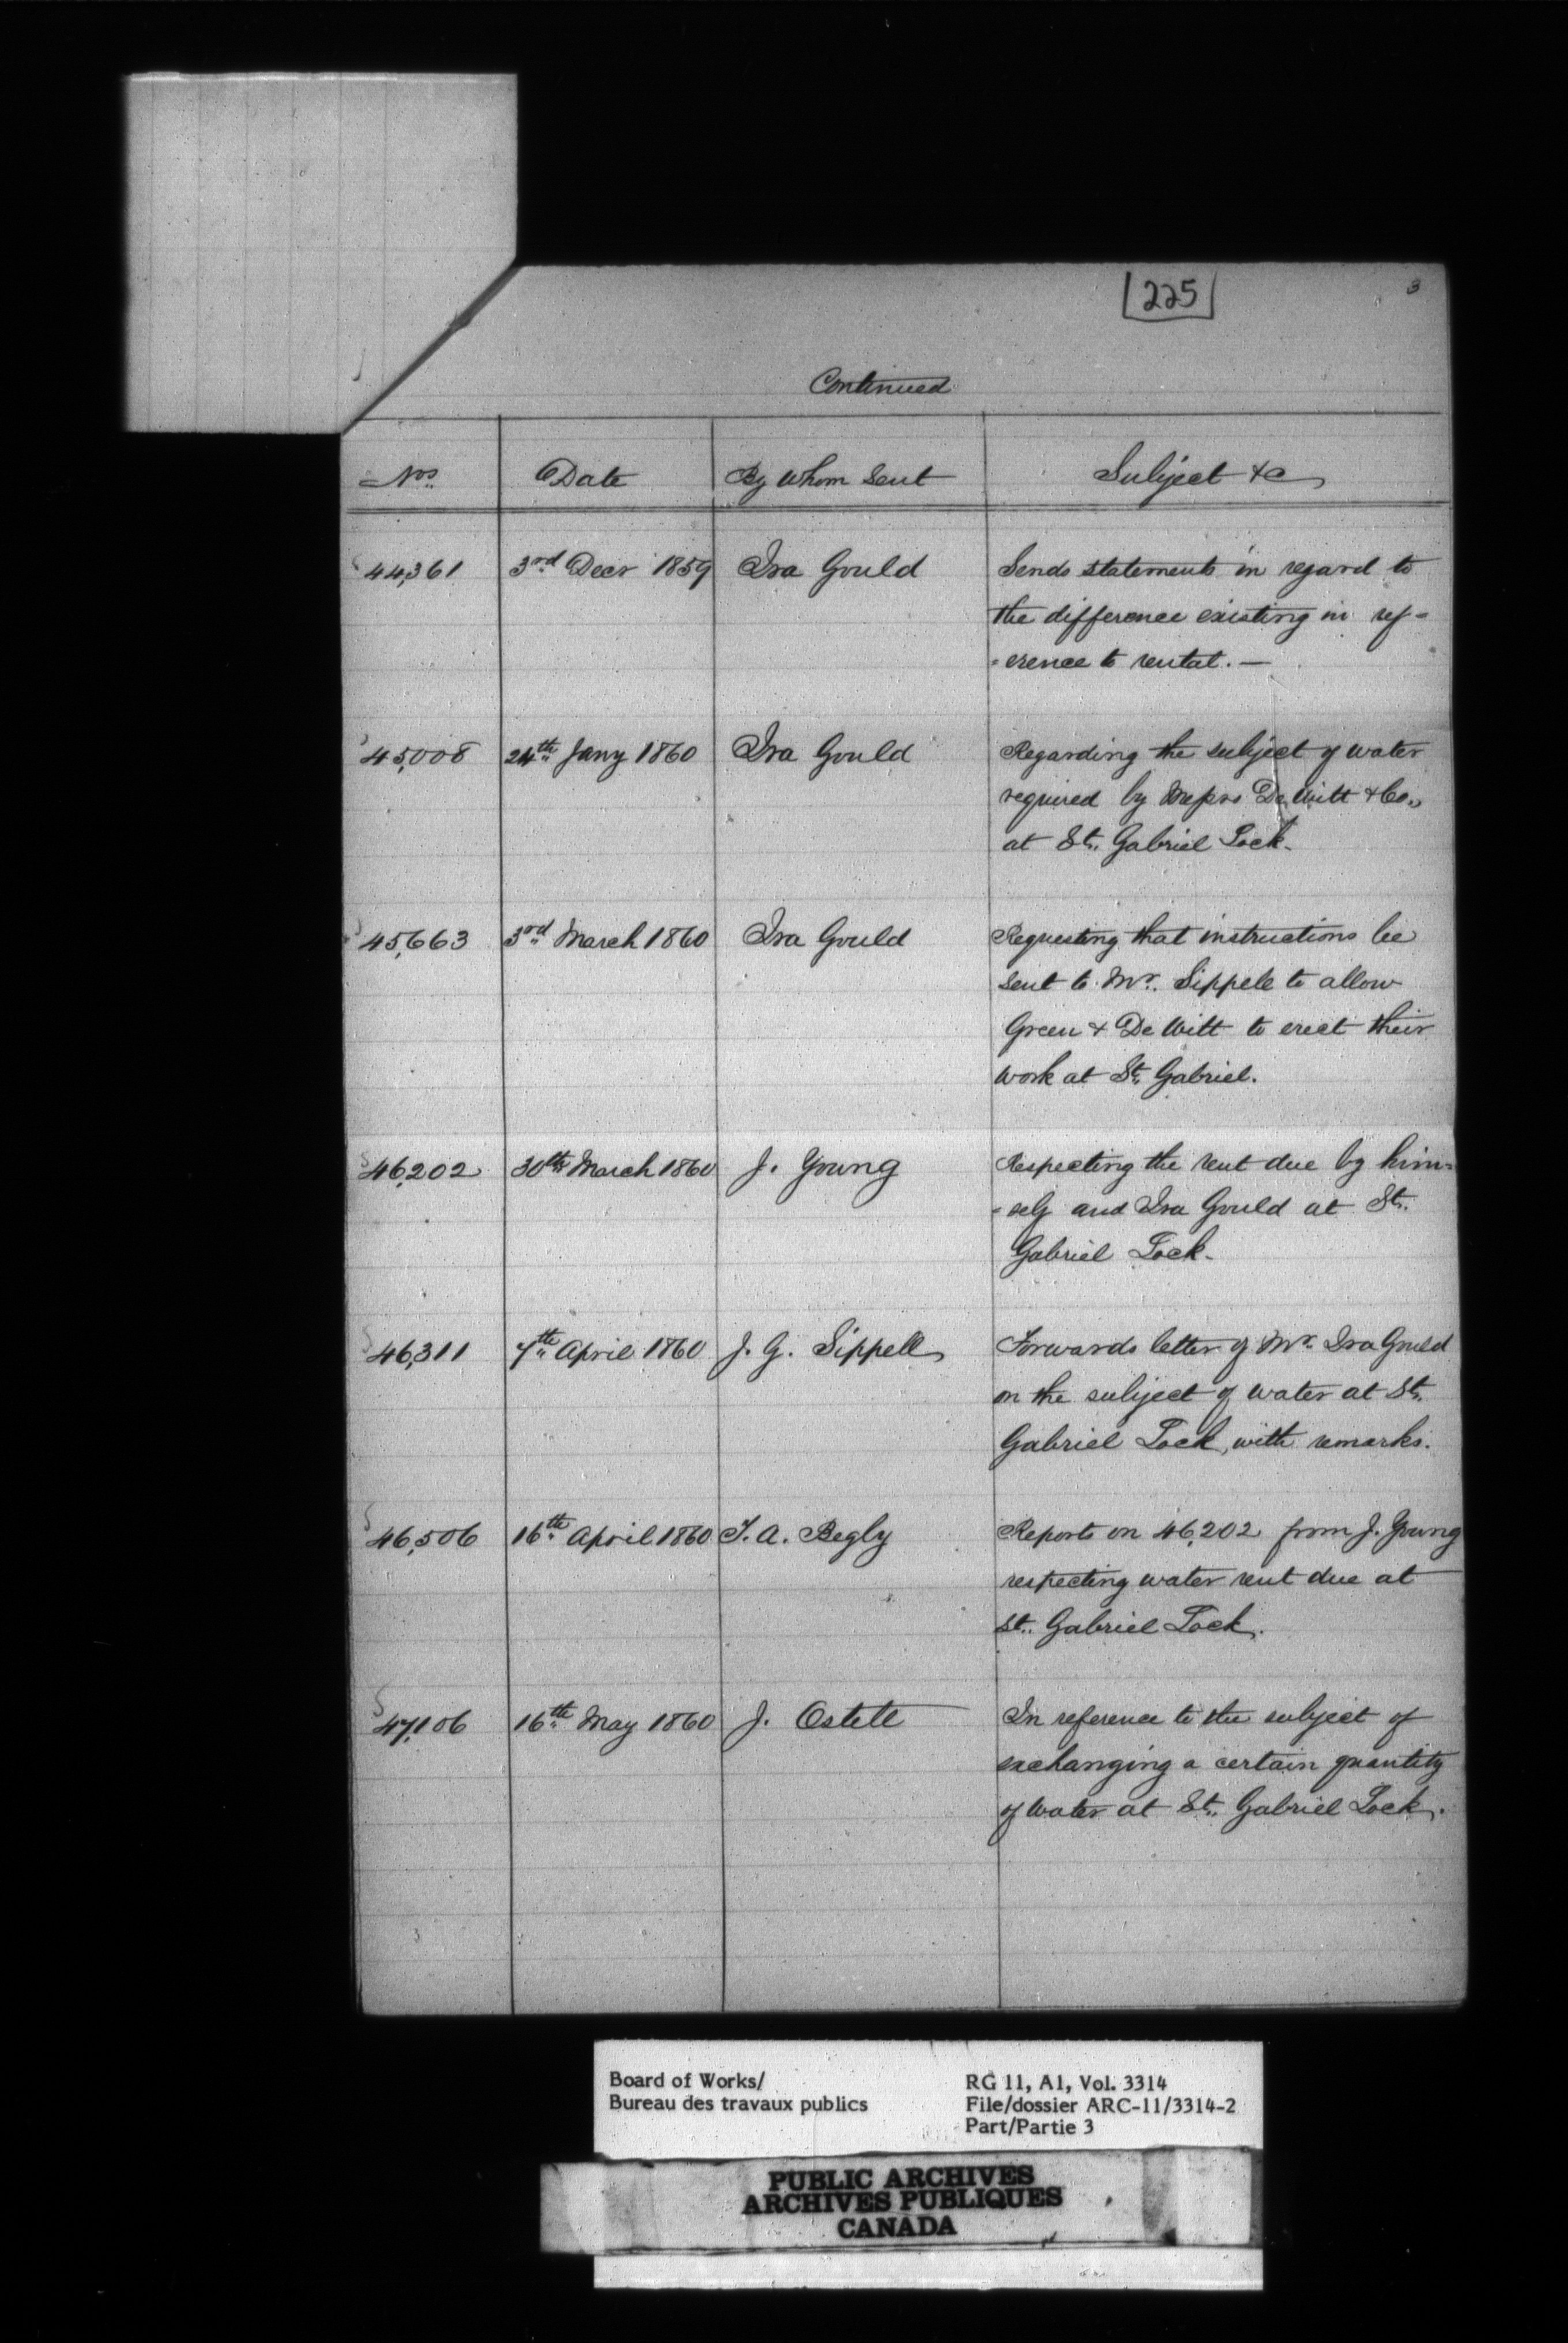 225
3
Continued
Nos. Date By whom sent Subject &c
44,361 3rd Decr 1859 Ira Gould Sends statements in regard to
the difference existing in ref=
=erence to rental. —
45,008 24th Jany 1860 Ira Gould Regarding the subject of water
required by Messrs De Witt & Co.,
at St. Gabriel Lock.
45,663 3rd March 1860 Ira Gould Requesting that instructions be
sent to Mr. Sippele to allow
Green & De Witt to erect their
work at St. Gabriel.
46,202 30th March 1860 J. Young Respecting the rent due by him=
=self and Ira Gould at St.
Gabriel Lock.
46,311 7th April 1860 J. G. Sippell Forwards letter of Mr. Ira Gould
on the subject of water at St.
Gabriel Lock, with remarks.
46,506 16th April 1860 T. A. Begly Reports on 46,202 from J. Young
respecting water rent due at
St. Gabriel Lock.
47,106 16th May 1860 J. Ostell In reference to the subject of
exchanging a certain quantity
of water at St. Gabriel Lock.
Board of Works/
Bureau des travaux publics
RG 11, A1, Vol. 3314
File/dossier ARC-11/3314-2
Part/Partie 3
PUBLIC ARCHIVES
ARCHIVES PUBLIQUES
CANADA